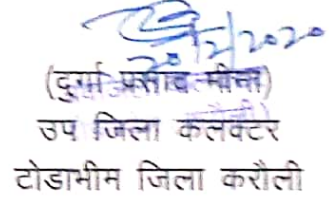 20/2/2020
(दुर्गा प्रसाद मीना)
उप जिला कलक्टर
टोडाभीम जिला करौली